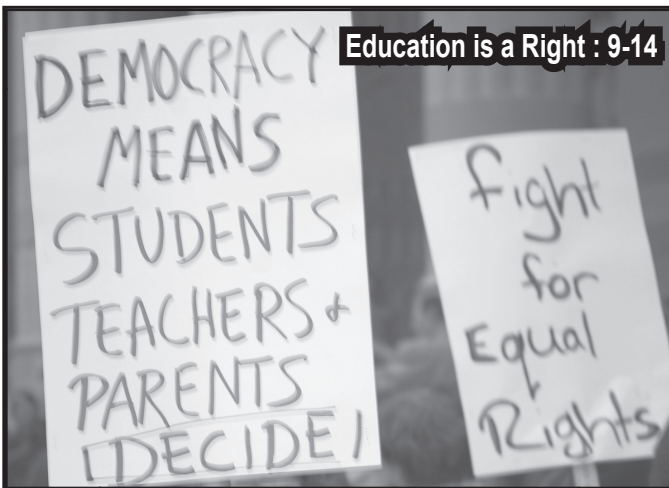 Education is a Right : 9-14
DEMOCRACY
MEANS
STUDENTS
TEACHERS &
PARENTS
DECIDE
fight
for
Equal
Rights